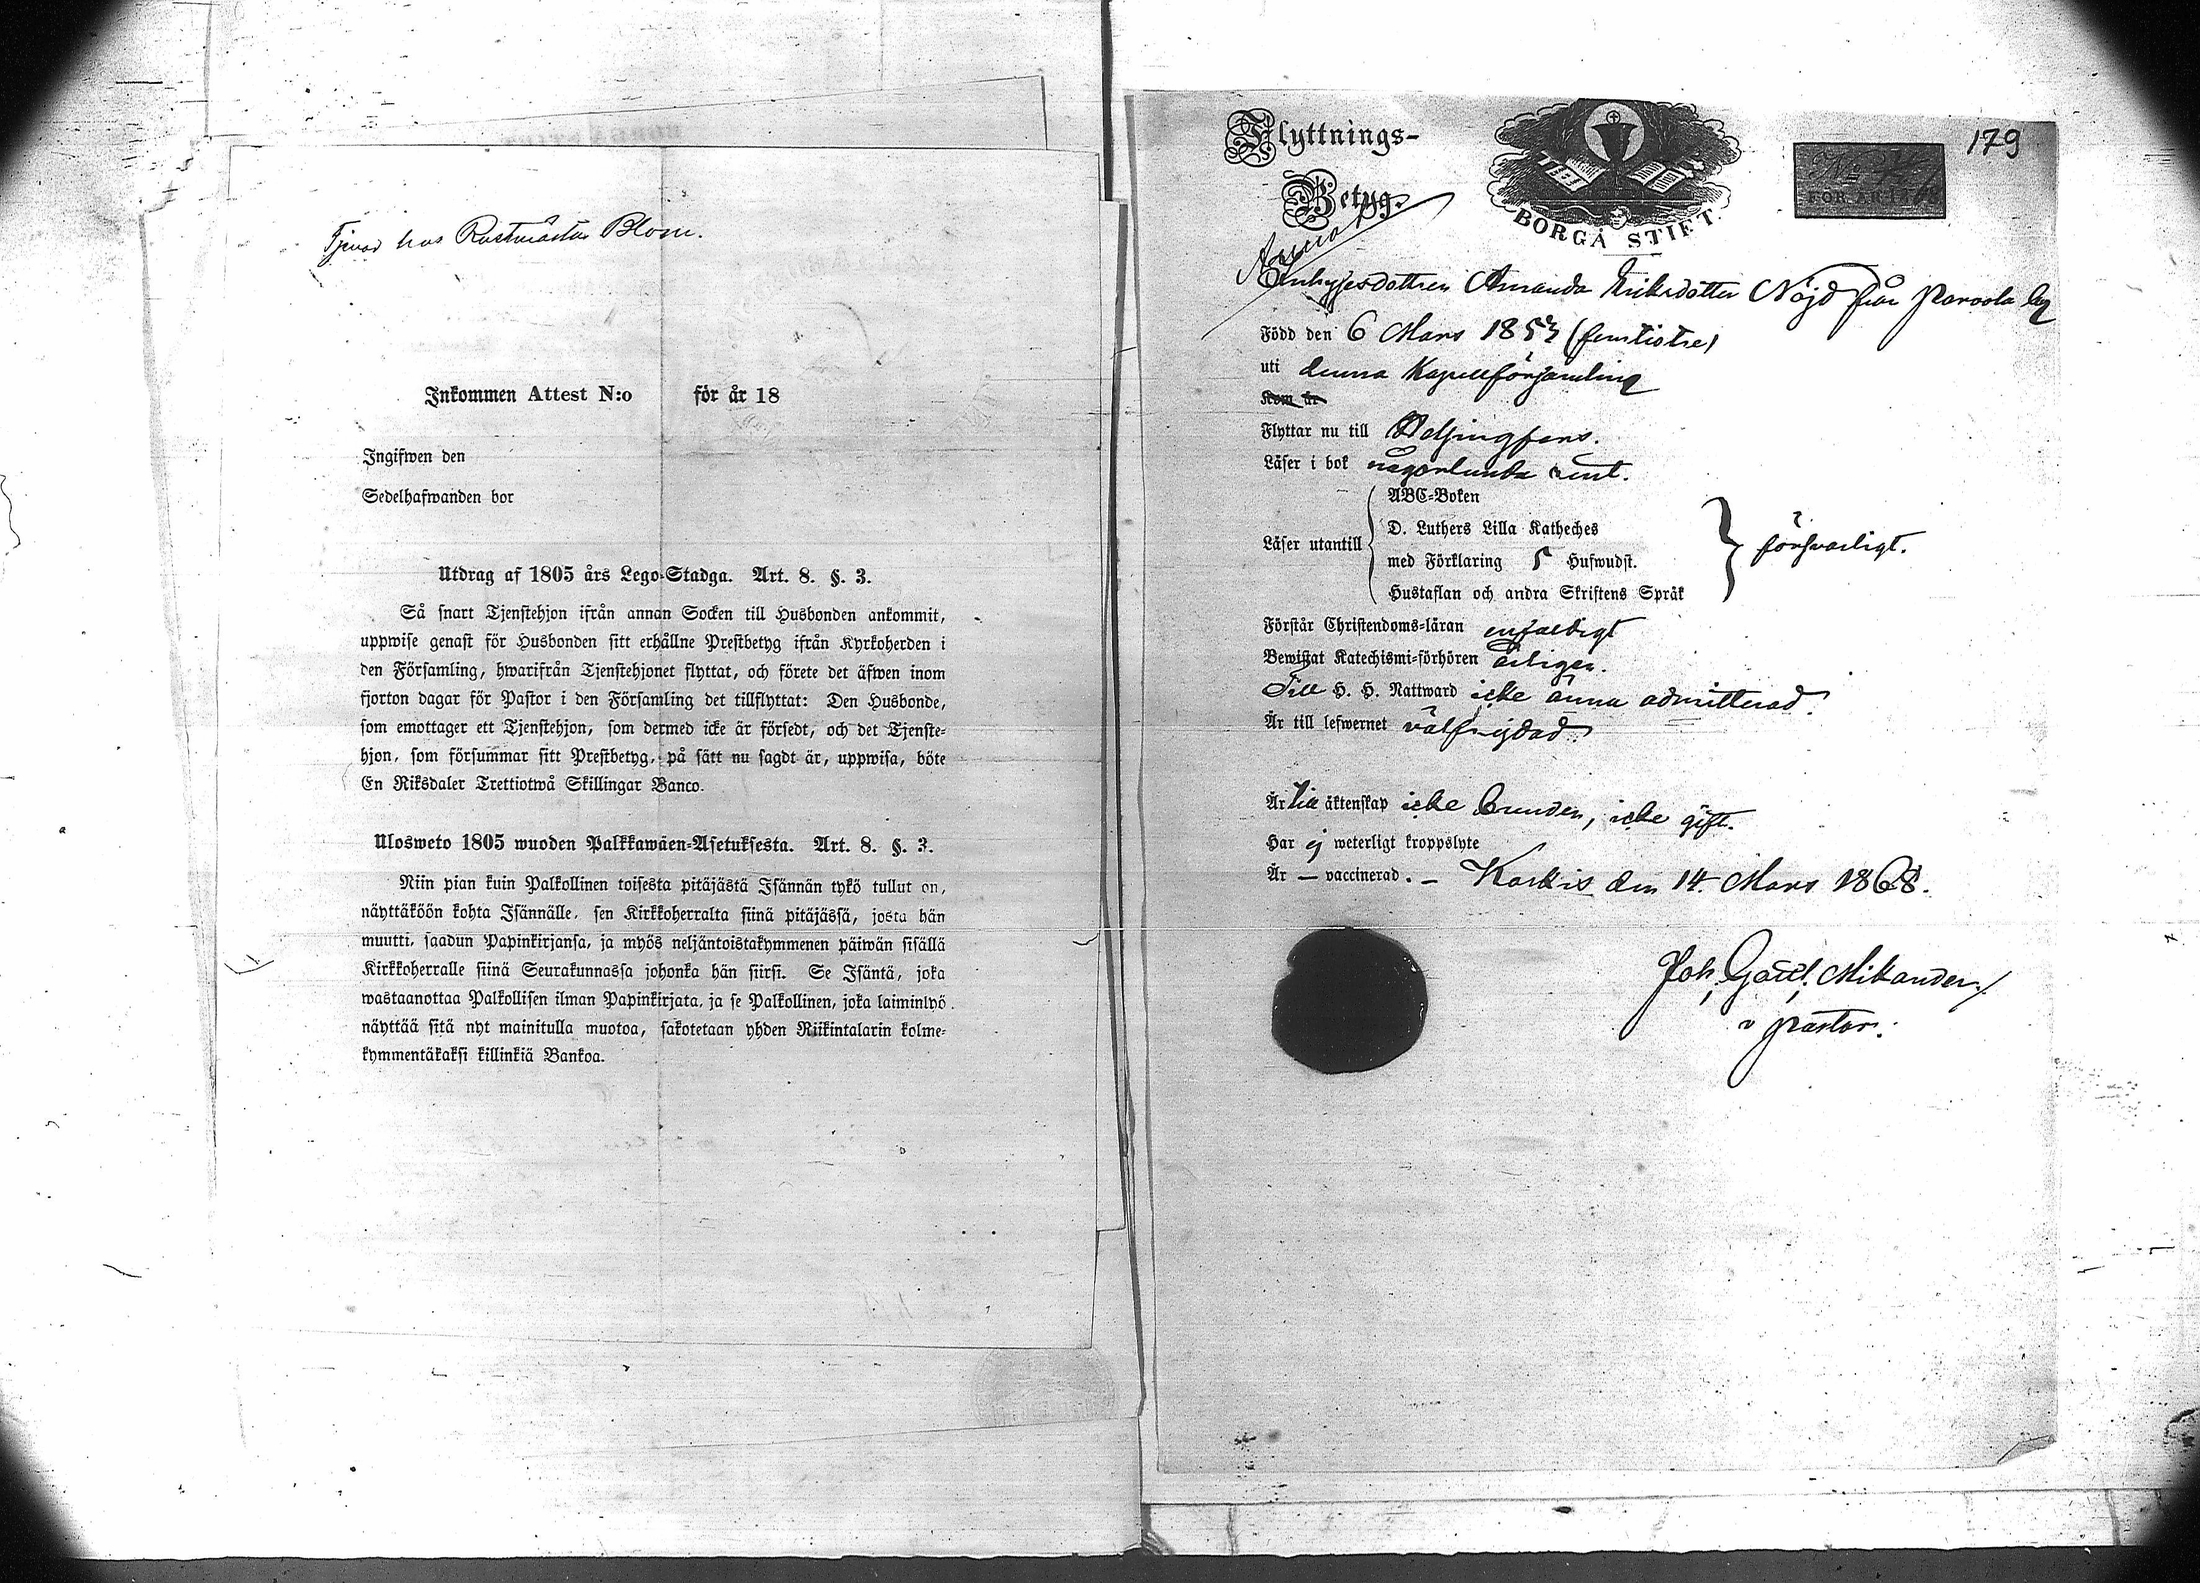 Tjenar hos Rustmästar Blom.
Inkommen Attest N:o för år 18
Ingifwen den
Sedelhafwanden bor
Utdrag af 1805 års Lego-Stadga. Art. 8. §. 3.
Så snart Tjenstehjon ifrån annan Socken till Husbonden ankommit,
uppwise genast för Husbonden sitt erhållne Prestbetyg ifrån Kyrkoherden i
den Församling, hwarifrån Tjenstehjonet flyttat, och förete det äfwen inom
fjorton dagar för Pastor i den Församling det tillflyttat: Den Husbonde,
som emottager ett Tjenstehjon, som dermed icke är försedt, och det Tjenste-
hjon, som försummar sitt Prestbetyg, på sätt nu sagdt är, uppwisa, böte
En Riksdaler Trettiotwå Skillingar Banco.
Ulosweto 1805 wuoden Palkkawäen-Asetuksesta. Art. 8. §. 3.
Niin pian kuin Palkollinen toisesta pitäjästä Isännän tykö tullut on,
näyttäköön kohta Isännälle, sen Kirkkoherralta siinä pitäjässä, josta hän
muutti, saadun Papinkirjansa, ja myös neljäntoistakymmenen päiwän sisällä
Kirkkoherralle siinä Seurakunnassa johonka hän siirsi. Se Isäntä, joka
wastaanottaa Palkollisen ilman Papinkirjata, ja se Palkollinen, joka laiminlyö
näyttää sitä nyt mainitulla muotoa, sakotetaan yhden Riikintalarin kolme-
kymmentäkaksi killinkiä Bankoa.
179
Flyttnings-
Betyg.
BORGÅ STIFT
No
FÖR ÅR 18
Enhyses dottren Amanda Eriksdotter Nöjd från Paroola by
Född den 6 Mars 1853 (femtiotre)
uti denna Kapellförsamling
Kom år
Flyttar nu till Helsingfors.
Läser i bok någorlunda rent.
ABC-Boken
D. Luthers Lilla Katheches
Läser utantill med Förklaring 5 Hufwudst. försvarligt.
Hustaflan och andra Skriftens Språk
Förstår Christendoms-läran enfaldigt
Bewistat Katechismi-förhören årligen.
Till H. H. Nattward icke ännu admitterad.
Är till lefwernet välfrejdad.
Är till äktenskap icke bunden, icke gift.
Har ej weterligt kroppslyte
Är — vaccinerad. — Karkis den 14 Mars 1868.
Joh. Gust. Mikander
v pastor.